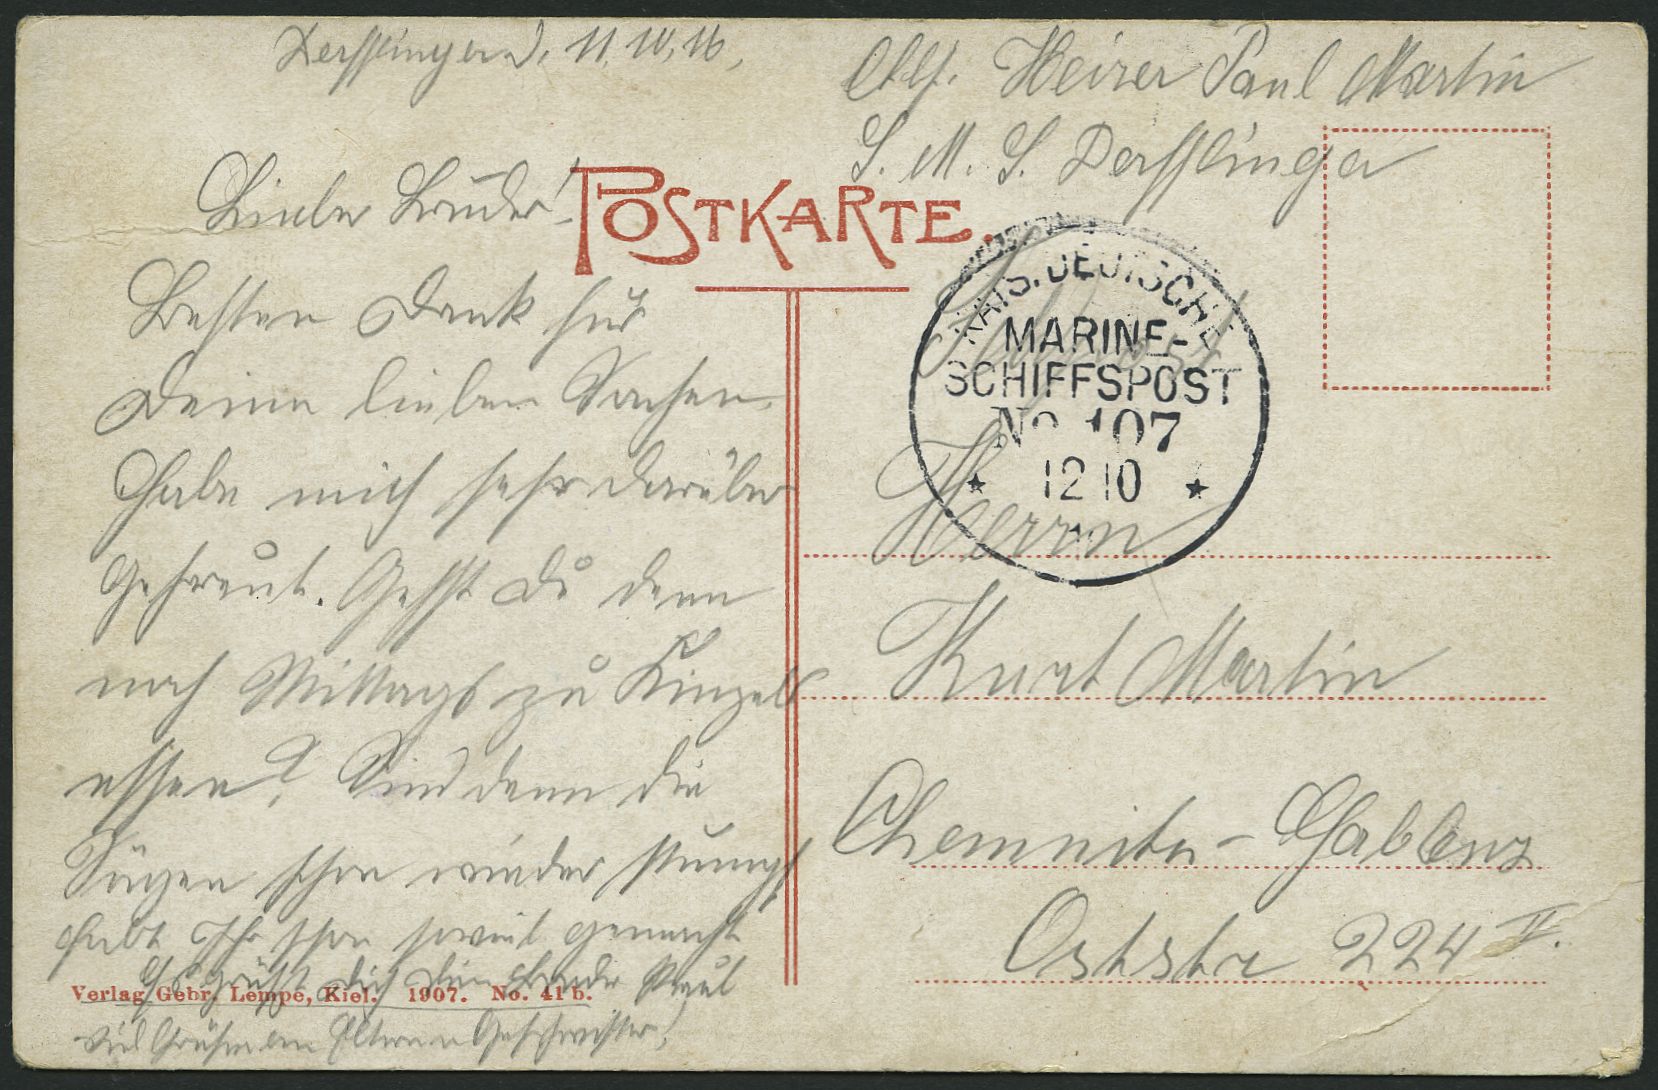 Derfflinger d. 11.10.16.
Lieber Bruder!
Besten Dank für
Deine lieben Sachen.
Habe mich sehr darüber
gefreut. Gehst Du denn
noch Mittags zu Kinzels
essen? Sind denn die
Sägen schon wieder stumpf
habt Ihr schon soviel gemacht
Es grüßt Dich Dein Bruder Paul
Viel Grüße an Eltern u Geschwister!
Verlag Gebr. Lempe, Kiel. 1907. No. 41 b.
POSTKARTE.
Heizer Paul Martin
S. M. S. Derfflinger
KAIS. DEUTSCHE
MARINE-
SCHIFFSPOST
No 107
12 10
Herrn
Kurt Martin
Chemnitz - Gablenz
Oststr 224 II.